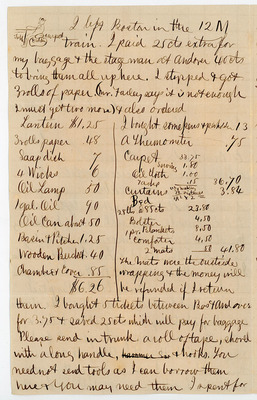 I left Boston in the 12 M
train. I paid 25 cts extra for
my baggage & the stage man at Andover 40 cts
to bring them all up here. I stopped & got
3 rolls of paper. Mr. Farley says it is not enough
I must get two more & also ordered
Lantern $1.25
3 rolls paper 48
Soap dish 7
4 Wicks 6
Oil Lamp 50
1 gal. Oil 90
Oil Can about 50
Basin & Pitcher 1.25
Wooden Bucket .40
Chamber .85
$6.26
I bought some pens & 13
A Thermometer .75
Carpet 33.75
Sewing 1.80
Oil Cloth 1.00
36.70
Curtains 3.84
Bed
25 lbs @ 85 cts 22.80
Bolster 4.50
1 pr. Blankets 8.50
Comforter 4.50
2 mats 50 41.80
The mats were the outside
wrapping & the money will
be refunded if I return
them. I bought 5 tickets between Bost & Andover
for 3.75 & saved 25 ct which will pay for baggage
Please send in trunk a roll of tape, shovel
with a long handle, & hooks. You
need not send tools as I can borrow them
here & you may need them. I spent for